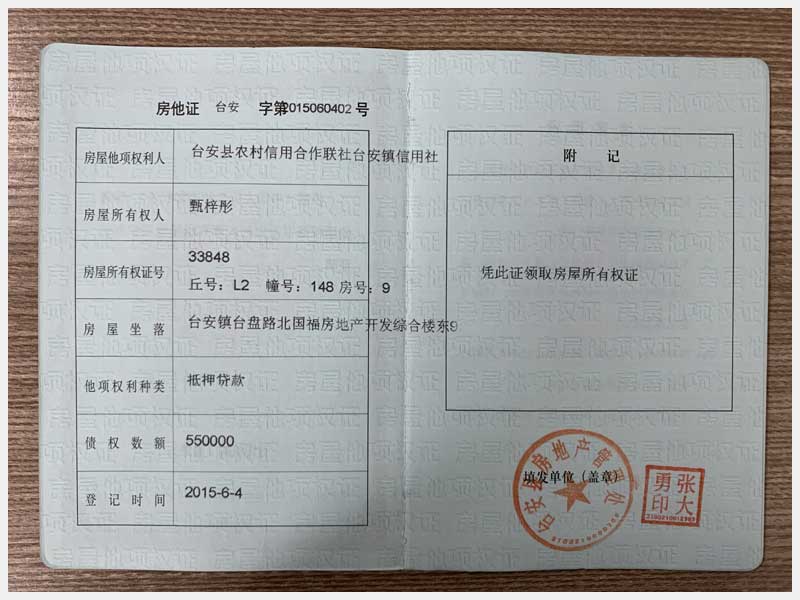 房他证 台安 字第2015060402号
房屋他项权利人 台安县农村信用合作联社台安镇信用社
房屋所有权人 甄梓彤
房屋所有权证号 33848
丘号：L2 幢号：148 房号：9
房屋坐落 台安镇台盘路北国福房地产开发综合楼东9
他项权利种类 抵押贷款
债权数额 550000
登记时间 2015-6-4
附记
凭此证领取房屋所有权证
台安县房地产管理处
填发单位（盖章）
张大勇印